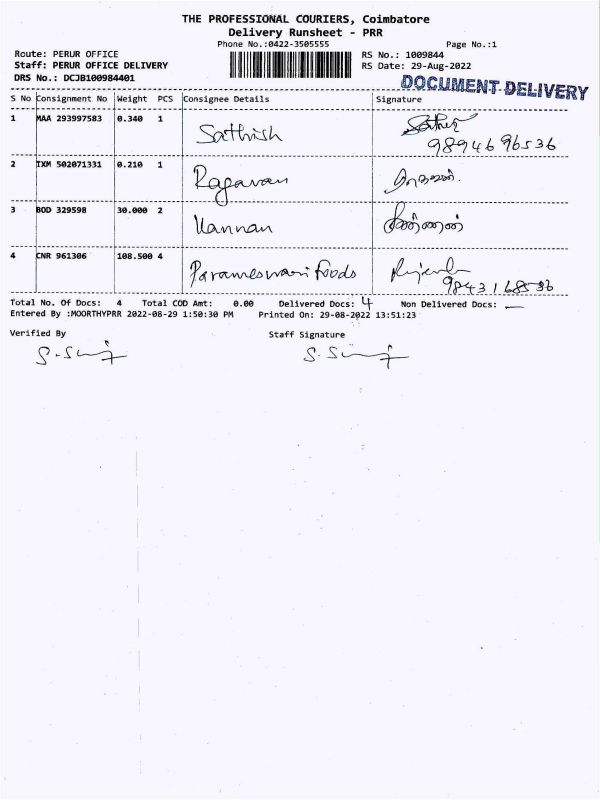 THE PROFESSIONAL COURIERS, Coimbatore
Delivery Runsheet - PRR
Phone No.:0422-3505555 Page No.:1
Route: PERUR OFFICE RS No.: 1009844
Staff: PERUR OFFICE DELIVERY RS Date: 29-Aug-2022
DRS No.: DCJB100984401 DOCUMENT DELIVERY
S No Consignment No Weight PCS Consignee Details Signature
1 MAA 293997583 0.340 1 Sathish
9894696536
2 IXM 502071331 0.210 1 Ragavan
3 BOD 329598 30.000 2 Kannan கண்ணன்
4 CNR 961306 108.500 4 Parameswari Foods
Total No. Of Docs: 4 Total COD Amt: 0.00 Delivered Docs: 4 Non Delivered Docs: —
Entered By :MOORTHYPRR 2022-08-29 1:50:30 PM Printed On: 29-08-2022 13:51:23
Verified By Staff Signature